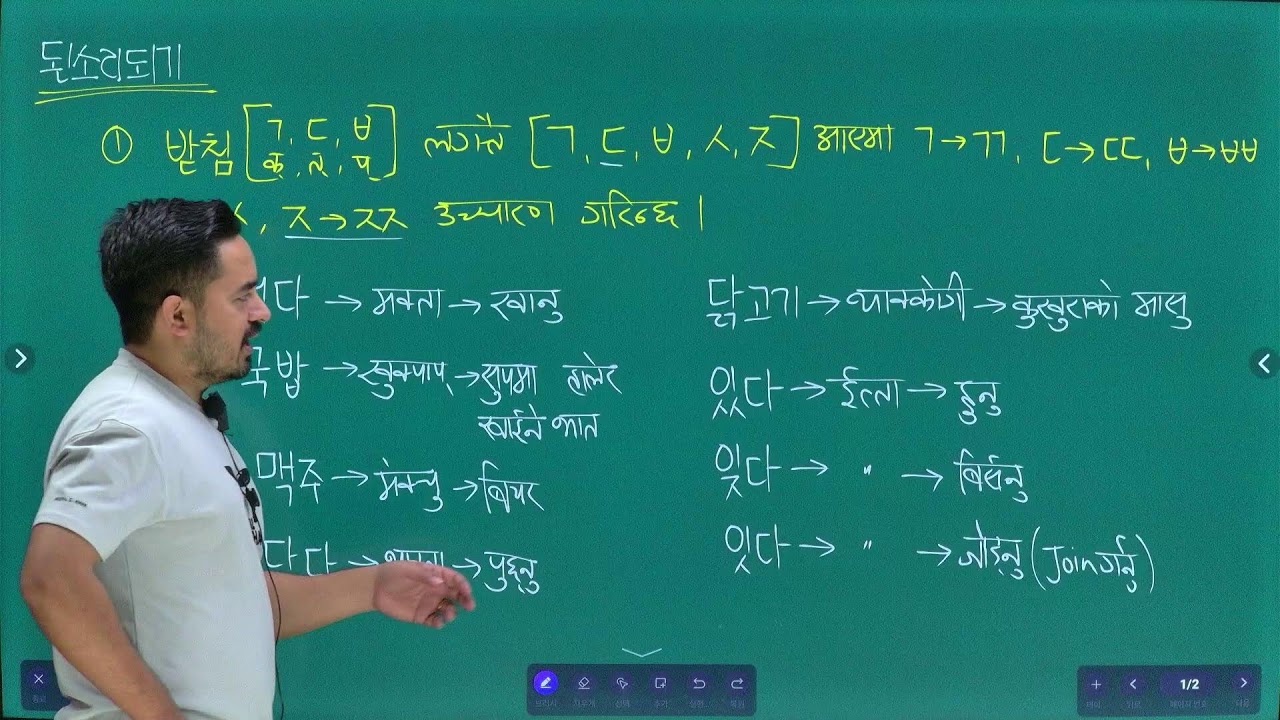 된소리되기
① 받침 [ㄱ, ㄷ, ㅂ] लगत्तै [ㄱ, ㄷ, ㅂ, ㅅ, ㅈ] आएमा ㄱ→ㄲ, ㄷ→ㄸ, ㅂ→ㅃ
क, त, प
, ㅈ→ㅉ उच्चारण गरिन्छ।
다 → मक्ता → खानु
국밥 → खुक्पाप् → सुपमा हालेर
खाईने भात
맥주 → मेक्चु → बियर
→ पुछ्नु
닭고기 → थाक्कोगी → कुखुराको मासु
있다 → ईत्ता → हुनु
잊다 → " → बिर्सनु
잇다 → " → जोड्नु (Join गर्नु)
1/2